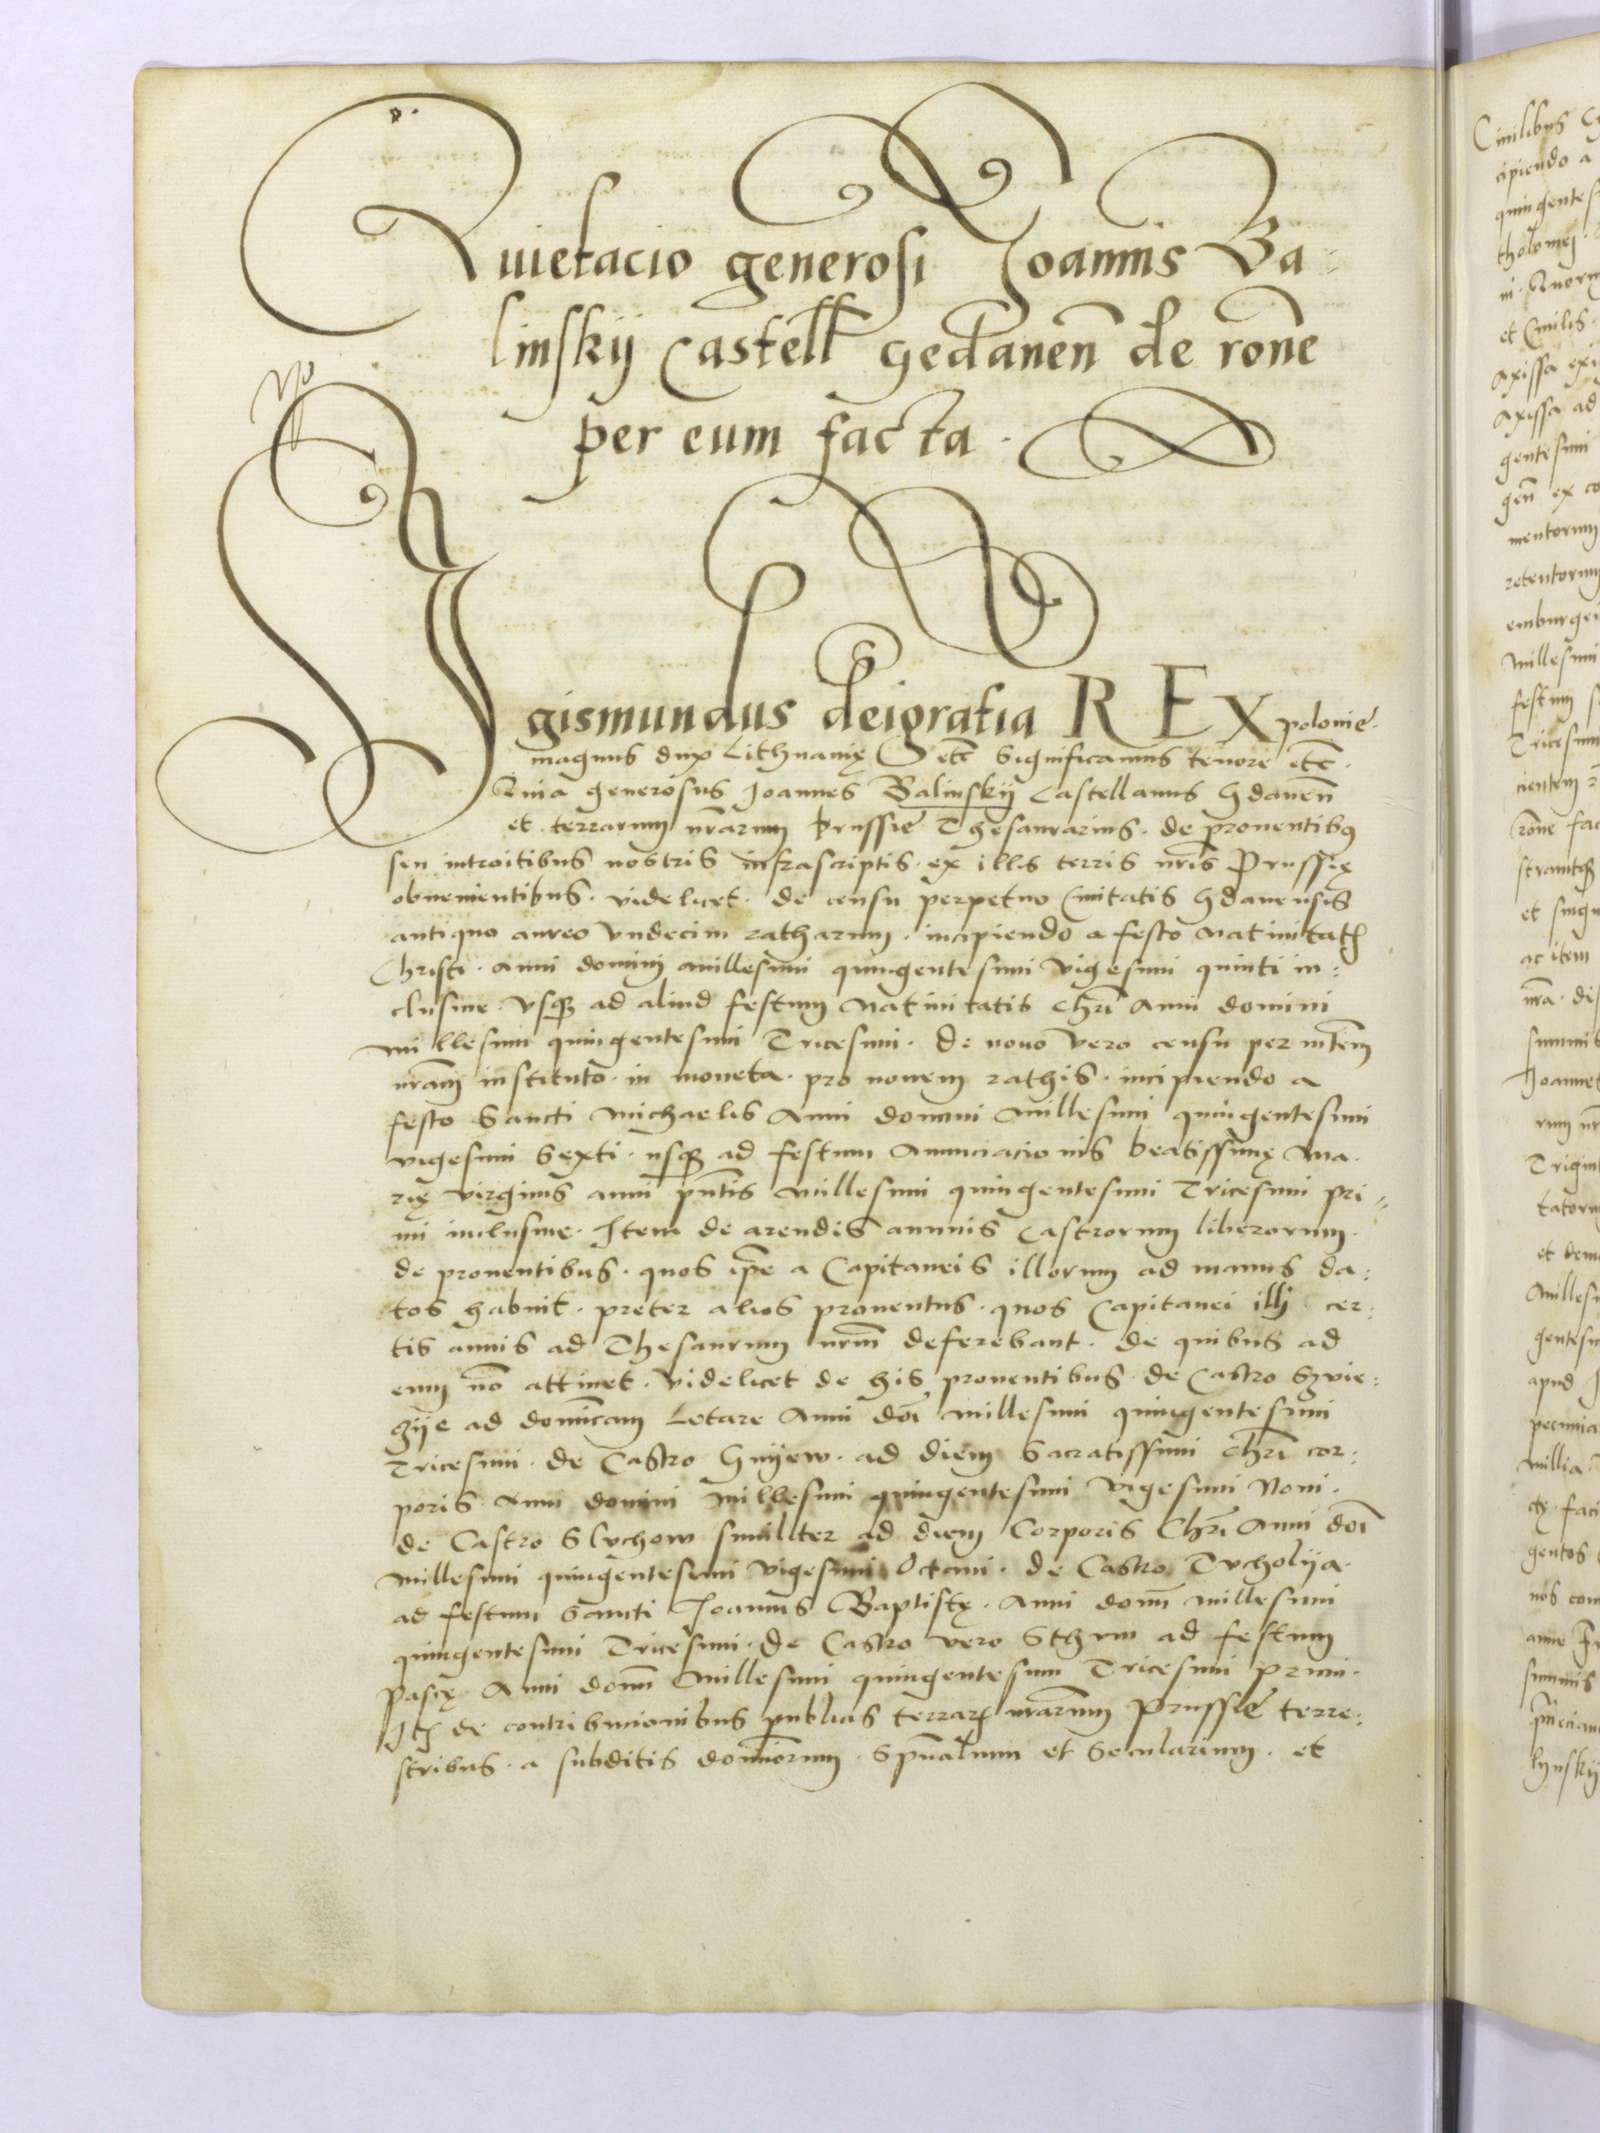 Quietacio generosi Joannis Ba=
linskij castell gedanen de rone
per eum facta.
Sigismundus deigratia REX polonie.
magnus dux Lithuanię etc Significamus tenore etc.
Quia generosus Joannes Balinskij Castellanus Gdanen
et terrarum nrarum Prussie Thesaurarius. de prouentibus
seu introitibus nostris infrascriptis. ex illis terris nris Prussię
obuenientibus. videlicet. de censu perpetuo Ciuitatis Gdanensis
antiquo aureo vndecim ratharum. incipiendo a festo Natiuitatis
Christi. anni domini millesimi quingentesimi vigesimi quinti in=
clusiue. vsque ad aliud festum Natiuitatis Chri Anni domini
millesimi quingentesimi Tricesimi. de nouo vero censu per mtem
nram instituto. in moneta. pro nouem rathis. incipiendo a
festo Sancti Michaelis Anni domini Millesimi quingentesimi
vigesimi Sexti. usque ad festum Anunciacionis beatissimę Ma.
rię virginis anni pntis Millesimi quingentesimi Tricesimi pri=
mi inclusiue. Item de arendis annuis Castrorum liberorum.
de prouentibus. quos ipse a Capitaneis illorum ad manus da=
tos habuit. preter alios prouentus. quos Capitanei illi cer=
tis annis ad Thesaurum nrum deferebant. de quibus ad
eum no attinet. videlicet de his prouentibus. de Castro Szvie=
zije ad dominicam Letare Anni doi millesimi quingentesimi
Tricesimi. de Castro Gnijew. ad diem Sacratissimi Chri cor=
poris. Anni domini Millesimi quingentesimi Vigesimi Noni.
de Castro Sluchow similiter ad diem Corporis Chri Anni doi
Millesimi quingentesimi Vigesimi Octaui. de Castro Tucholija.
ad festum Sancti Joannis Baptistę. Anni domi Millesimi
quingentesimi Tricesimi. de Castro vero Sthum ad festum
Pascę Anni domi Millesimi quingentesimi Tricesimi primi.
Item de contribucionibus publicis terrarum nrarum Prussię terre=
stribus. a subditis dominorum. Spualium et Secularium. et